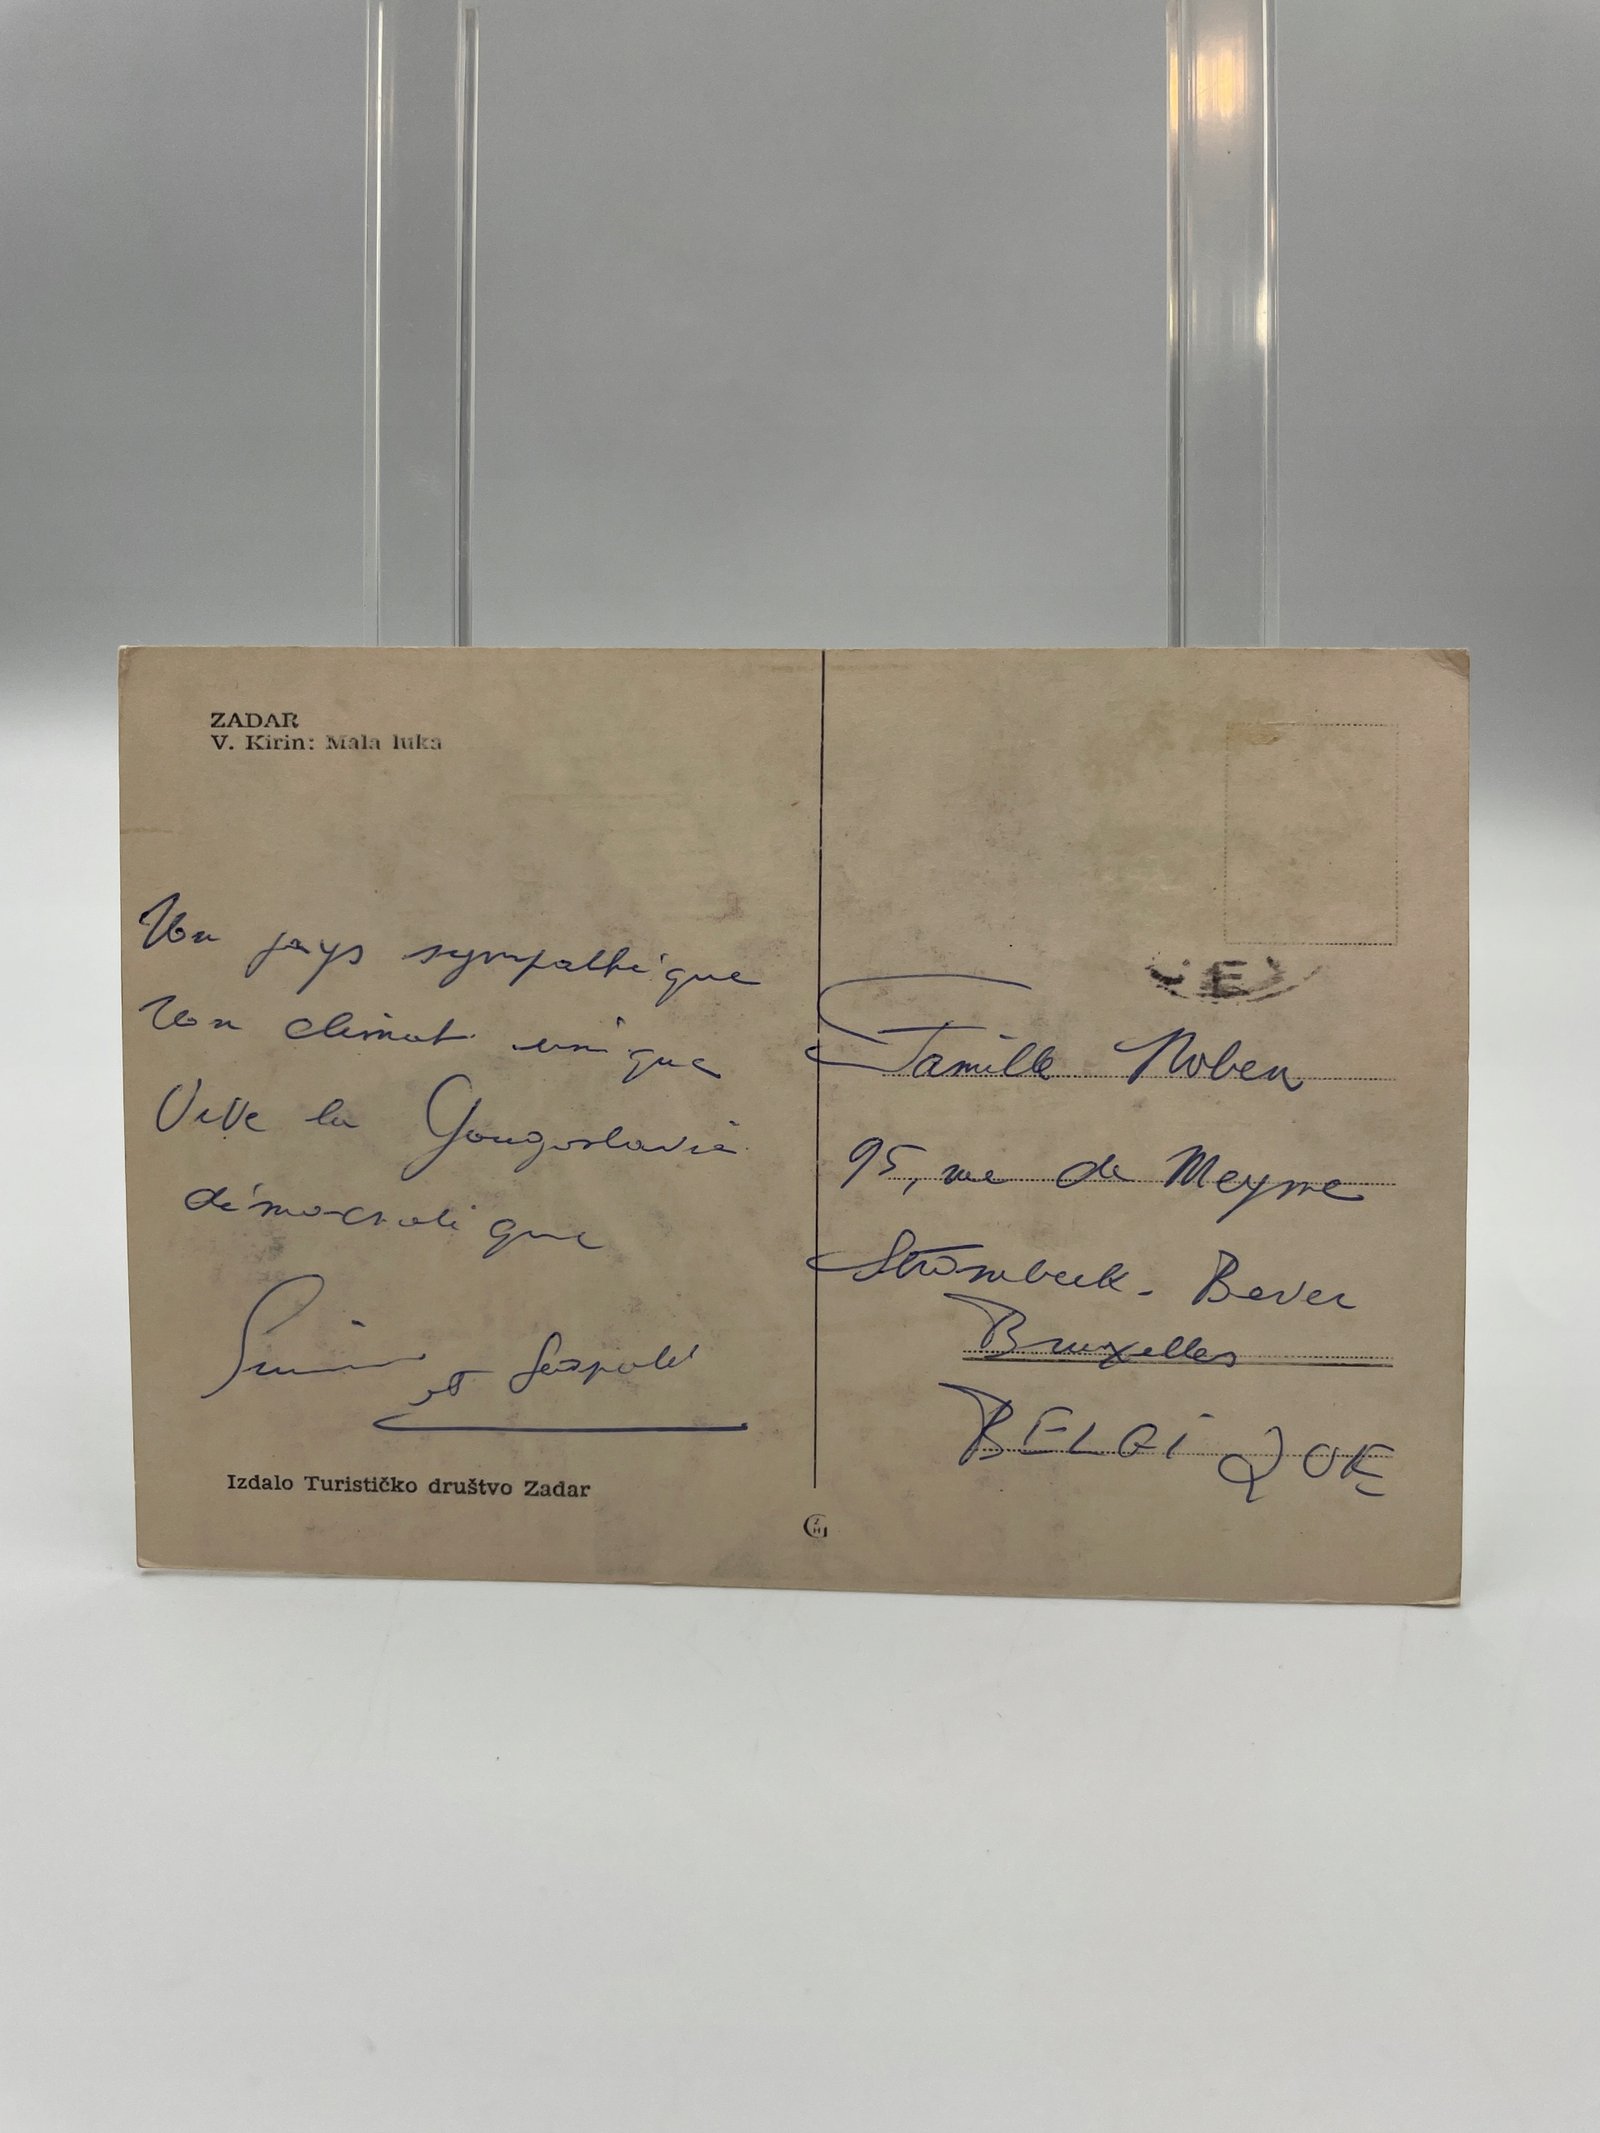 ZADAR
V. Kirin: Mala luka
Un pays sympathique
Un climat unique
Vive la Yougoslavie
démocratique
et Léopold
Izdalo Turističko društvo Zadar
Famille
95, rue de Meysse
Strombeek - Bever
Bruxelles
BELGIQUE